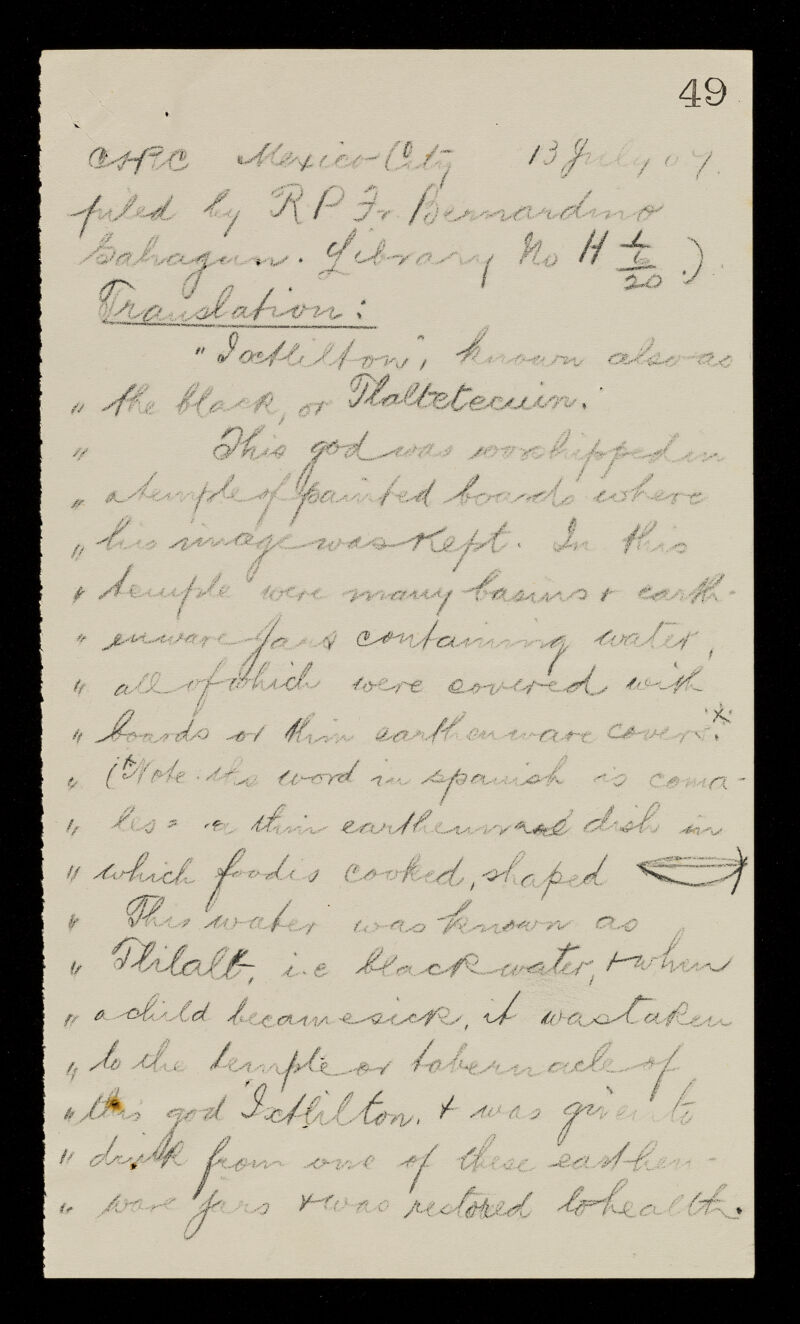 49
CSRC Mexico City 13 July 07.
piled by R P Fr. Bernardino
Sahagun. Library No H 1/6/20.)
Translation:
"Ixtlilton", known also as
" the black, or Tlaltetecuin.
" This god was worshipped in
" a temple of painted boards where
" his image was kept. In this
" temple were many basins & earth-
" enware jars containing water,
" all of which were covered with
" boards or thin earthenware covers.x
" (x Note: the word in spanish is coma-
" les = a thin earthenware dish in
" which food is cooked, shaped )
" This water was known as
" Tlilalt, i.e black water, & when
" a child became sick, it was taken
" to the temple or tabernacle of
" this god Ixtlilton, & was given to
" drink from one of these earthen-
" ware jars & was restored to health.